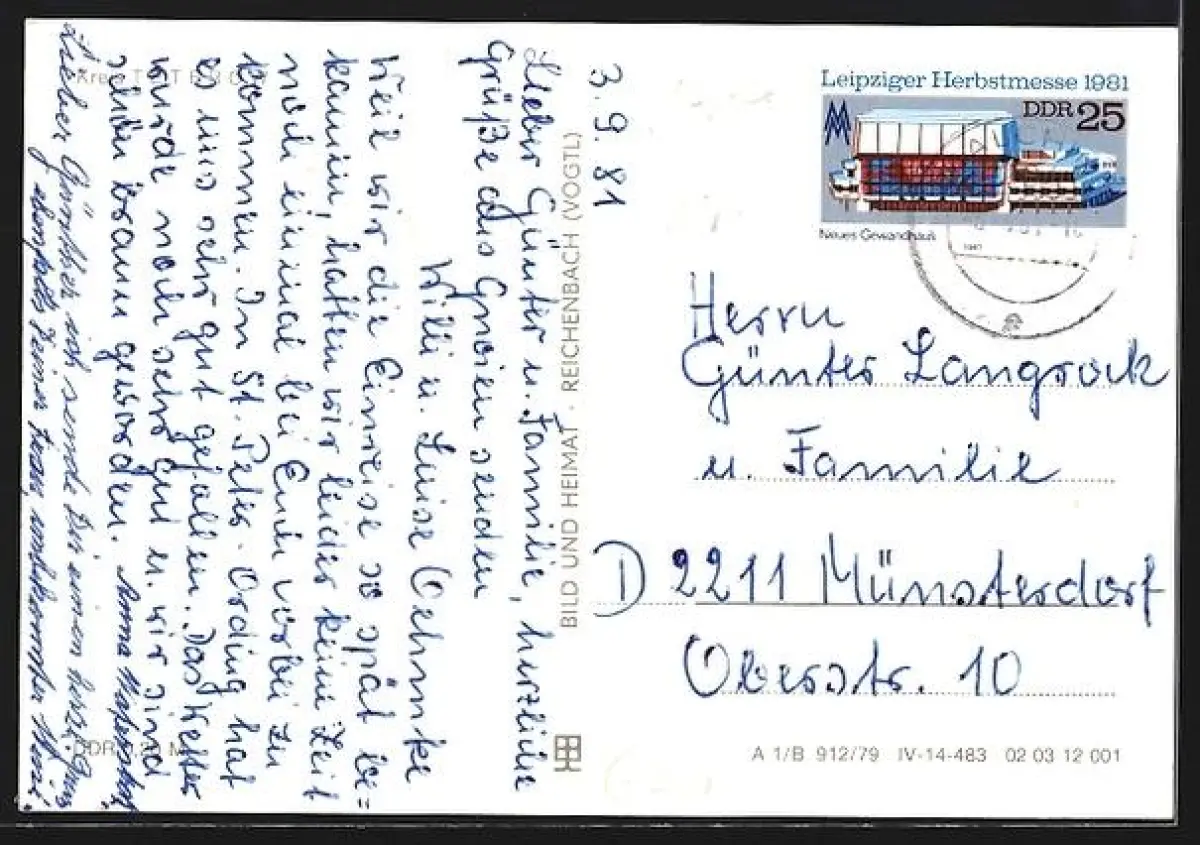 3. 9. 81
Lieber Günter u. Familie, herzliche
Grüße aus Gnoien senden
Willi u. Luise Oehmke
Weil wir die Einreise so spät be=
kamen, hatten wir leider keine Zeit
noch einmal bei Euch vorbei zu
kommen. In St. Peter-Ording hat
es uns sehr gut gefallen. Das Wetter
wurde noch sehr gut u. wir sind
schön braun geworden. Anna
Lieber Günther ich sende Dir einen herzl. Gruß
ebenfalls Deiner
Kreis TETEROW
DDR 0,20 M
BILD UND HEIMAT · REICHENBACH (VOGTL)
Leipziger Herbstmesse 1981
DDR 25
Neues Gewandhaus
Herrn
Günter Langrock
u. Familie
D 2211 Münsterdorf
Oberstr. 10
A 1/B 912/79 IV-14-483 02 03 12 001